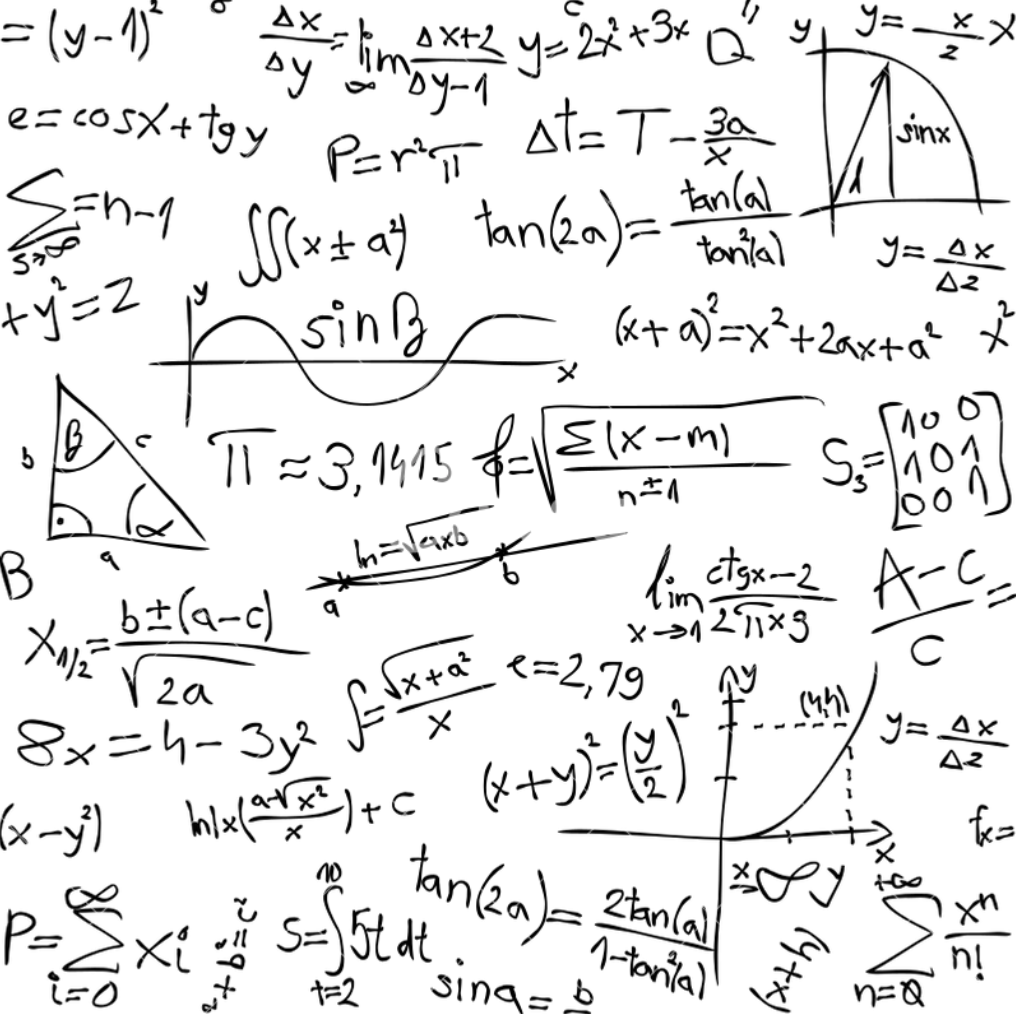 = (y-1)²
Δx/Δy = lim ∞ Δx+2/Δy-1
y=2x²+3x
Q
y
y=-x/2 X
e=cosx+tgy
P=r²π
Δt= T - 3a/x
sinx
∑ s→∞ =n-1
∬(x±a²)
tan(2a)= tan(a)/tan²(a)
y= Δx/Δ2
+y²=2
y
sinβ
x
(x+a)²=x²+2ax+a²
x²
b
β
c
α
a
π≈3,1415
=√∑(x-m)/n±1
S₃= [10 0
1 0 1
0 0 1]
B
ln=√axb
a
b
lim x→1 ctgx-2/2πx3
A-C/C =
X1/2= b±(a-c)/√2a
∫= √x+a²/x
e=2,79
y
(4,4)
x
y= Δx/Δ2
8x=4-3y²
(x+y)²=(y/2)²
(x-y²)
ln|x(a-√x²/x)+c
fx=
x→∞ y
P= ∞∑i=0 xi
S= 10∫t=2 5t dt
tan(2a)= 2tan(a)/1-tan²(a)
(x+h)
+∞∑n=0 xⁿ/n!
sina= b